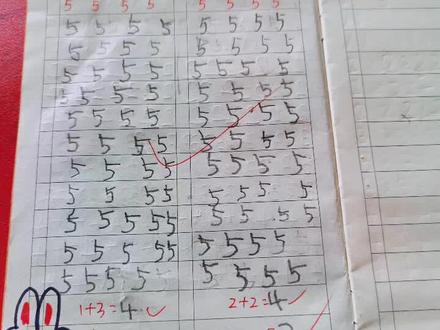 5 5 5 5 5 5 5 5
5 5 5 5 5 5 5 5
5 5 5 5 5 5 5 5
5 5 5 5 5 5 5 5
5 5 5 5 5 5 5 5
5 5 5 5 5 5 5 5
5 5 5 5 5 5 5 5
5 5 5 5 5 5 5 5
5 5 5 5 5 5 5 5
5 5 5 5 5 5 5 5 5
5 5 5 5 5 5 5 5 5
5 5 5 5 5 5 5 5
1+3=4 2+2=4